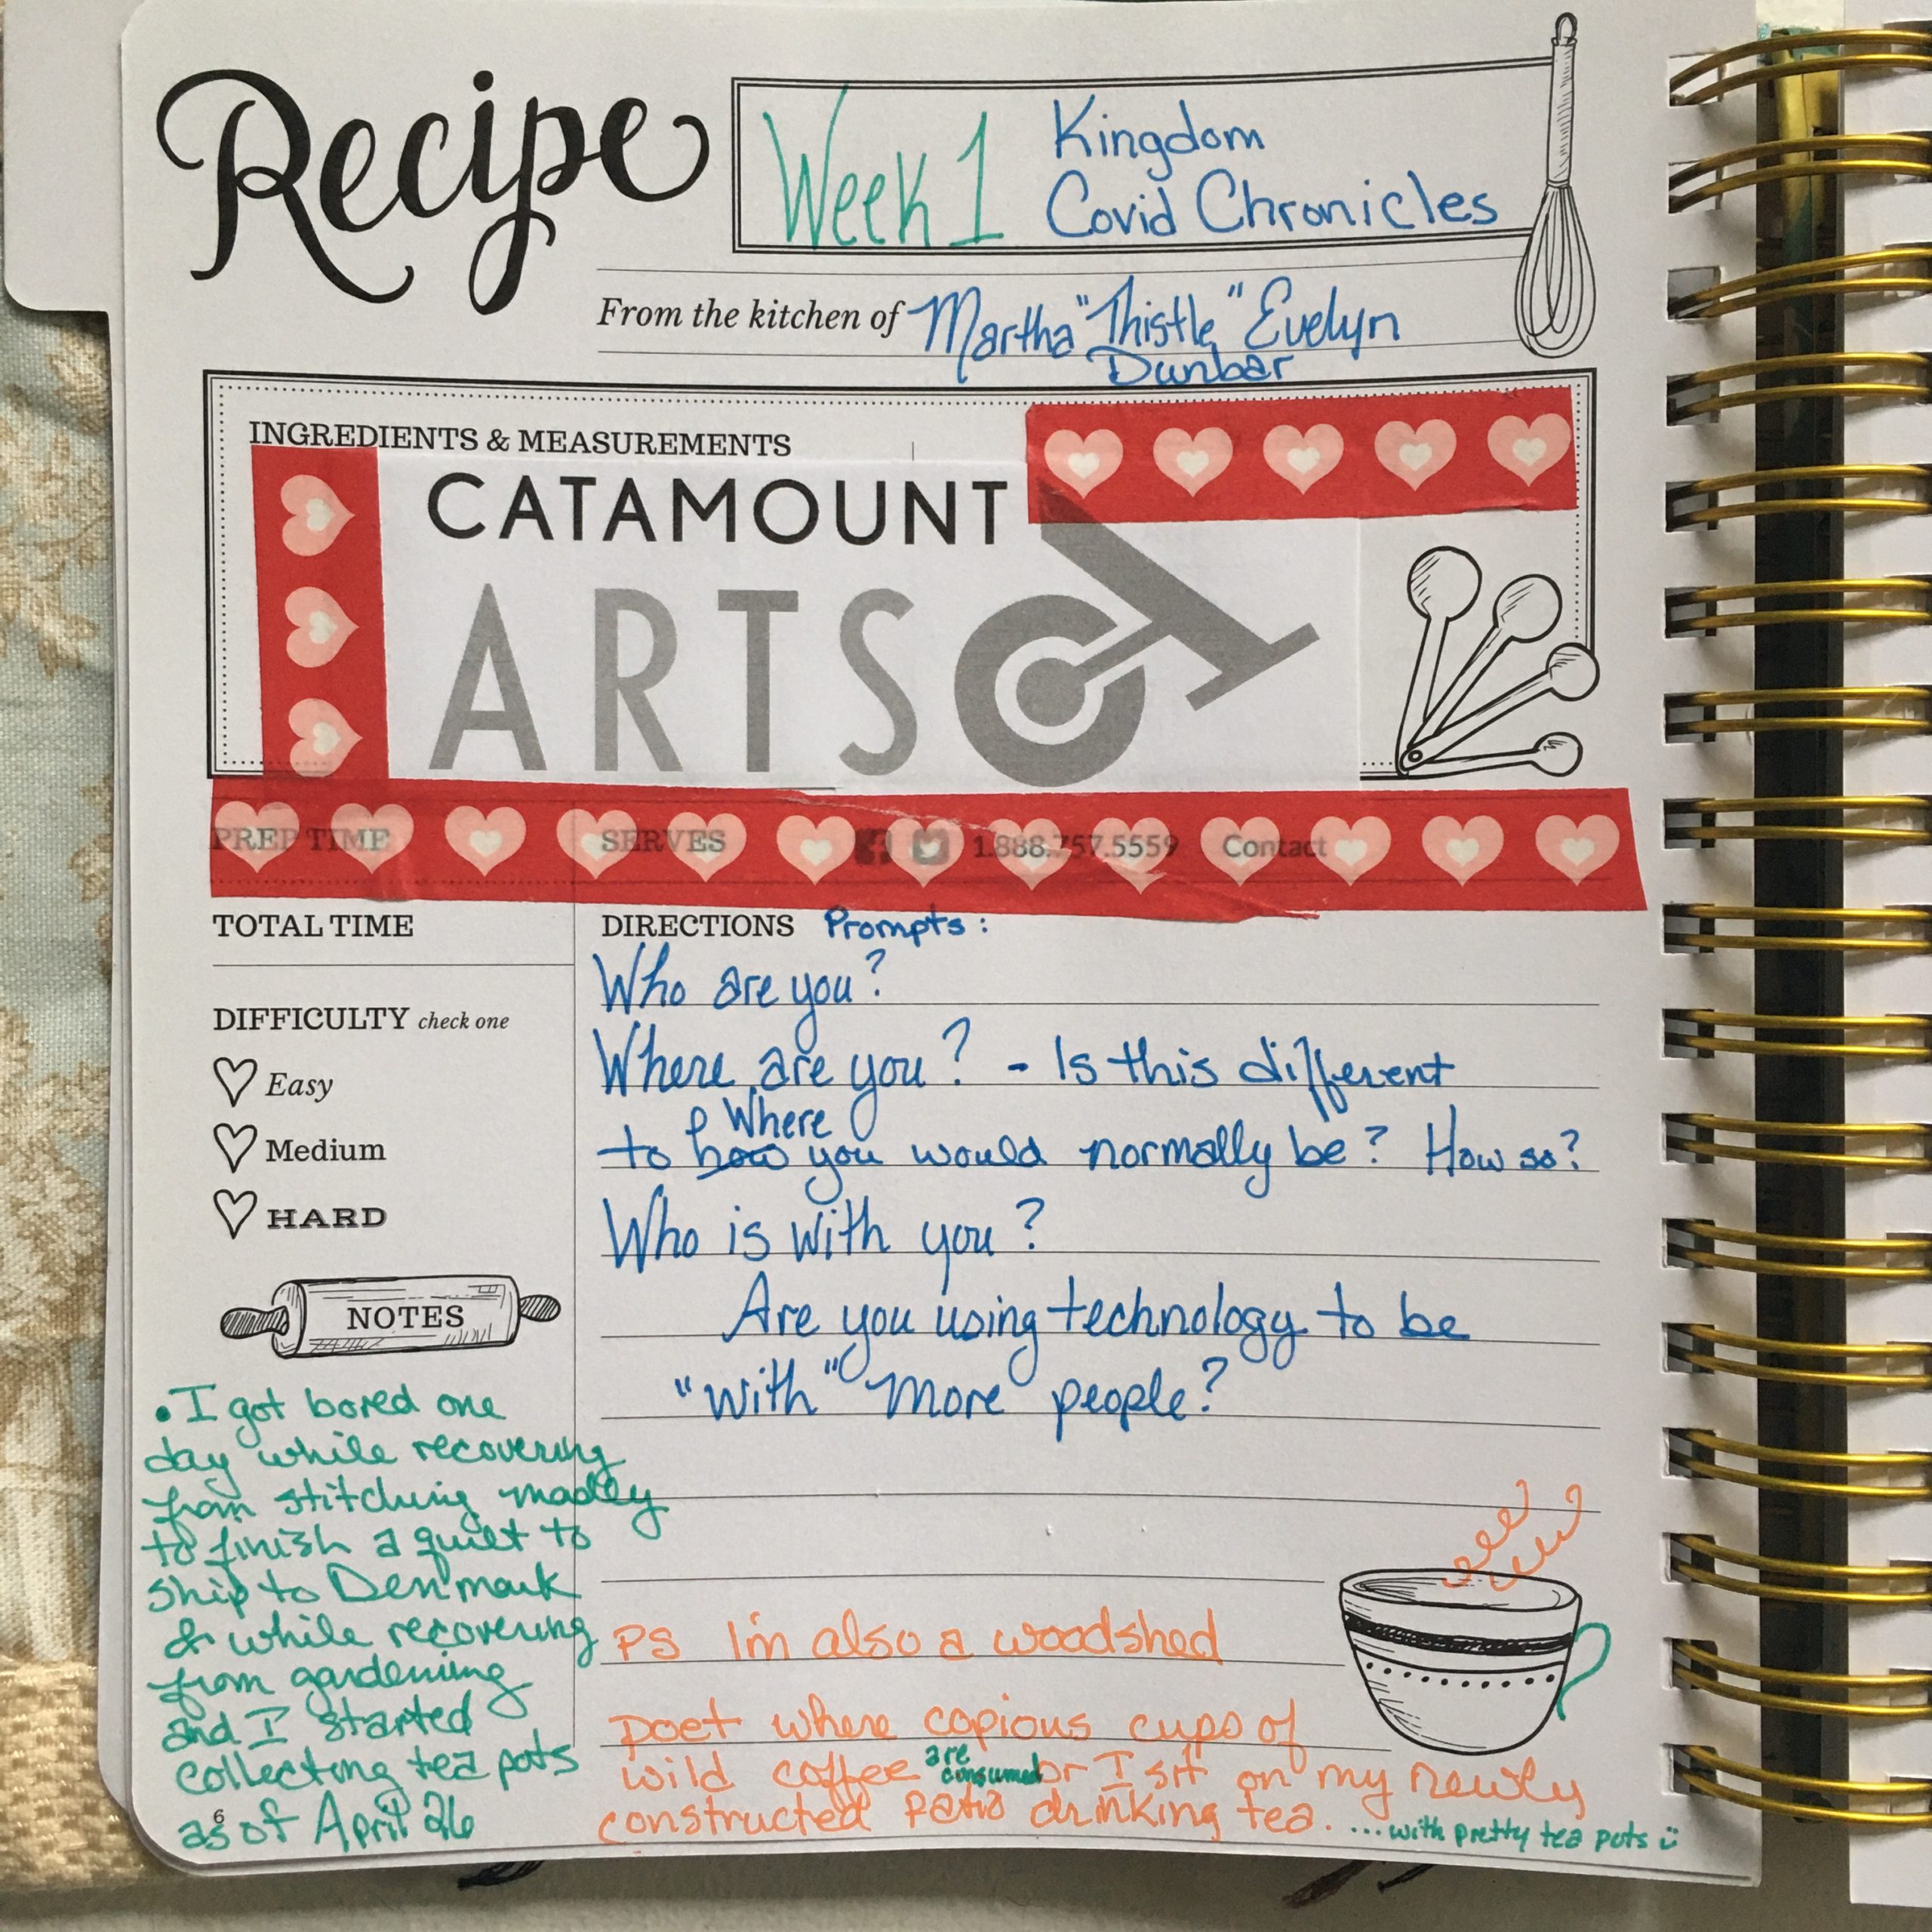 Recipe
Week 1 Kingdom
Covid Chronicles
From the kitchen of Martha "Thistle" Evelyn
Dunbar
INGREDIENTS & MEASUREMENTS
CATAMOUNT
ARTS
PREP TIME
SERVES
1.888.757.5559 Contact
TOTAL TIME
DIFFICULTY check one
Easy
Medium
HARD
NOTES
• I got bored one
day while recovering
from stitching madly
to finish a quilt to
ship to Denmark
& while recovering
from gardening
and I started
collecting tea pots
as of April 26
6
DIRECTIONS Prompts:
Who are you?
Where are you? - Is this different
Where
to how you would normally be? How so?
Who is with you?
Are you using technology to be
"with" more people?
PS I'm also a woodshed
poet where copious cups of
wild coffee are consumed or I sit on my newly
constructed patio drinking tea. ...with pretty tea pots